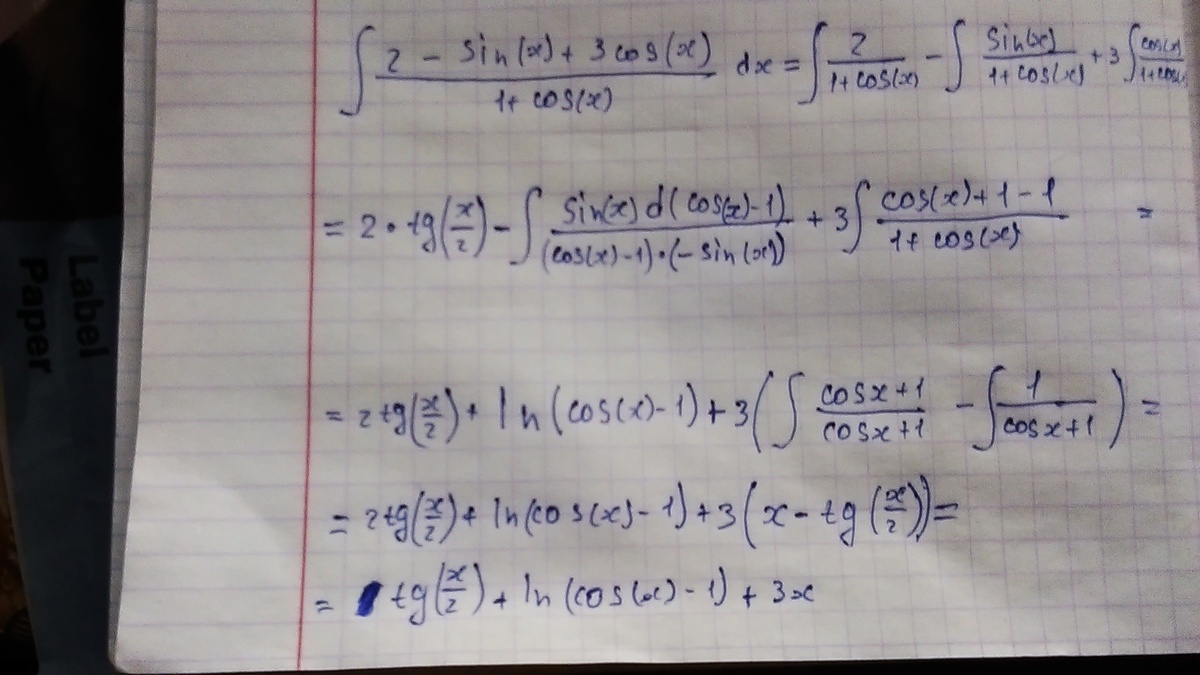 ∫ (2 - sin(x) + 3cos(x))/(1+cos(x)) dx = ∫ 2/(1+cos(x)) - ∫ sin(x)/(1+cos(x)) + 3∫ cos(x)/(1+cos(x)
= 2 · tg(x/2) - ∫ (sin(x) d(cos(x)-1))/((cos(x)-1)·(-sin(x))) + 3∫ (cos(x)+1-1)/(1+cos(x)) =
= 2tg(x/2) + ln(cos(x)-1) + 3(∫ (cosx+1)/(cosx+1) - ∫ 1/(cosx+1)) =
= 2tg(x/2) + ln(cos(x)-1) + 3(x - tg(x/2)) =
= tg(x/2) + ln(cos(x)-1) + 3x
Label
Paper